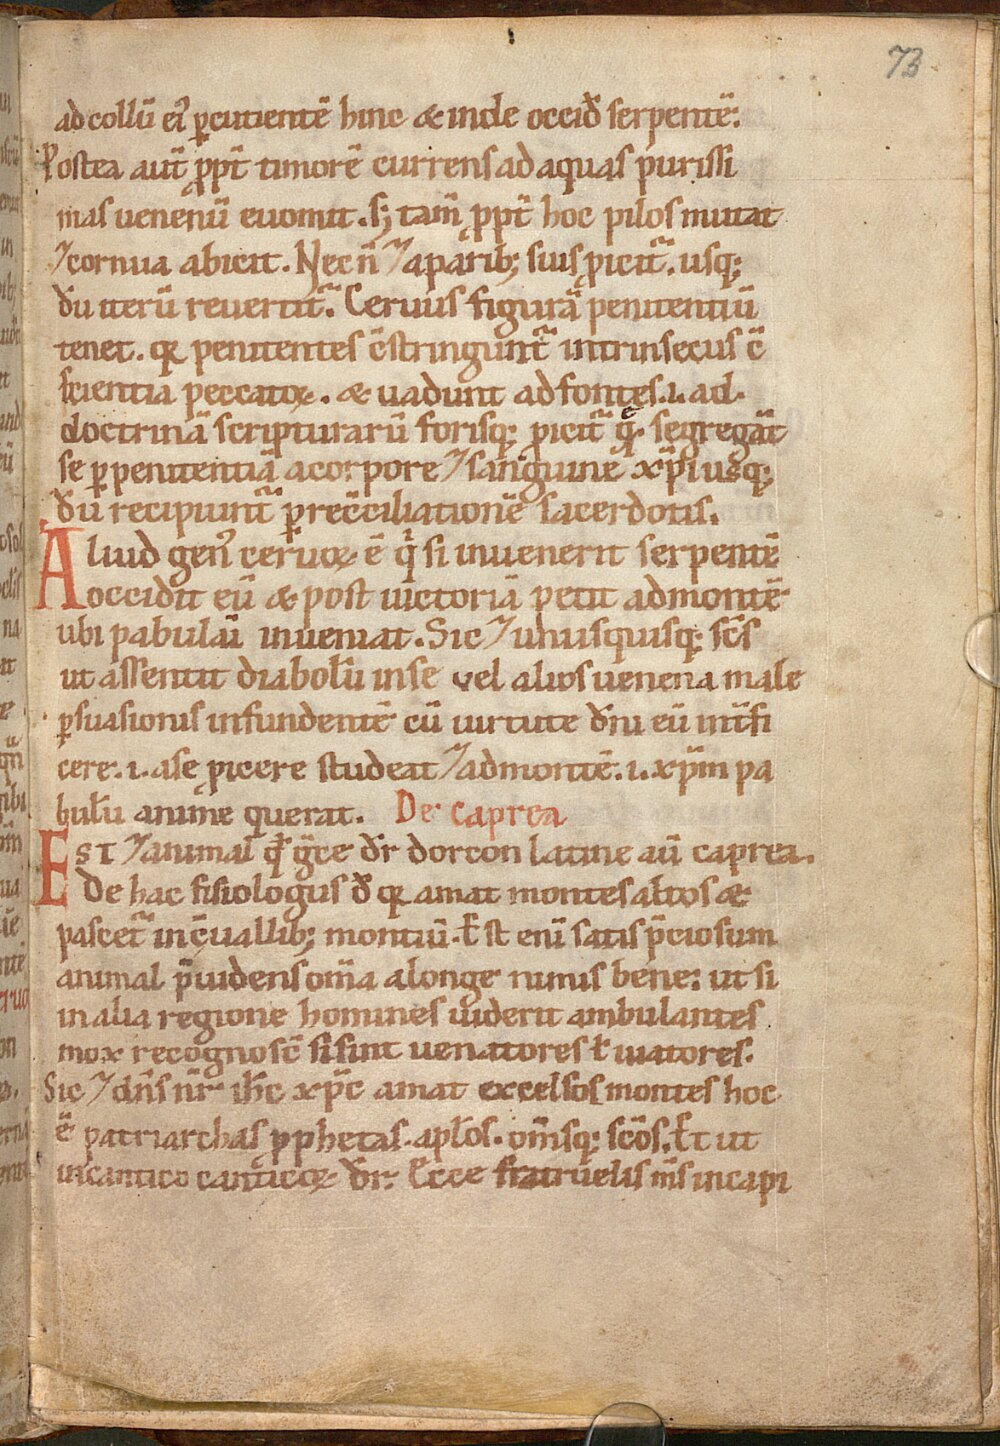 73
ad collū ei᷒ ꝑcutientē hinc & inde occid̄ serpentē.
Postea aut̄ ꝓpt̄ timorē currens ad aquas purissi
mas uenenū euomit. s; tam̄ ꝓpt̄ hoc pilos mutat
⁊ cornua abicit. Nec n̄ ⁊ a parib; suis ꝓicit᷑. usq;
dū iterū reuertit᷑. Ceruus figurā penitentiū
tenet. qꝛ penitentes c̄stringunt᷑ intrinsecus c̄
scientia peccatoꝝ. & uadunt ad fontes .i. ad
doctrinā scripturarū forisq; ꝓicit᷑ q̄. segregāt
se ꝑ penitentiā a corpore ⁊ sanguine xp̄i usq;
dū recipiunt᷑ ꝑ rec̄ciliationē sacerdotis.
Aliud gen᷒ ceruoꝝ ē q̇ si inuenerit serpentē
occidit eū & post uictoriā petit ad montē
ubi pabulū inueniat. Sic ⁊ unusquisq; sc̄s
ut assentit diabolū in se vel alios uenena male
ꝑsuasionis infundentē cū uirtute dn̄i eū int̄fi
cere .i. a se ꝓicere studeat ⁊ ad montē .i. xp̄m pa
bulū anime querat. De caprea
Est ⁊ animal qd̄ gr̄ce dr̄ dorcon latine aū caprea.
De hac fisiologus d̄ qꝛ amat montes altos &
pascet᷑ in c̄uallib; montiū. Est enī satis p̄ciosum
animal p̄uidens om̄a a longe nimis bene: ut si
in alia regione homines uiderit ambulantes
mox recognosc̄ si sint uenatores ł uiatores.
Sic ⁊ dn̄s nr̄ ih̄c xp̄c amat excelsos montes hoc
ē patriarchas ꝓphetas. apl̄os. om̄sq; sc̄os. Et ut
in cantico canticoꝝ dr̄. Ecce fratruelis m̄s in capi